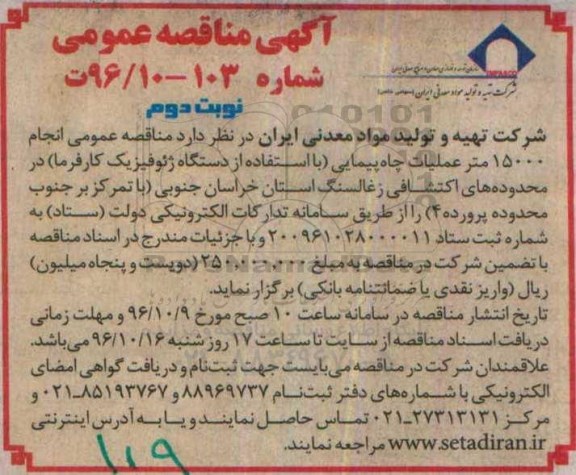 آگهی مناقصه عمومی
شماره ۱۰۳-۹۶/۱۰ت
نوبت دوم
IMPASCO
شرکت تهیه و تولید مواد معدنی ایران
شرکت تهیه و تولید مواد معدنی ایران در نظر دارد مناقصه عمومی انجام
۱۵۰۰۰ متر عملیات چاه‌پیمایی (با استفاده از دستگاه ژئوفیزیک کارفرما) در
محدوده‌های اکتشافی زغالسنگ استان خراسان جنوبی (با تمرکز بر جنوب
محدوده پرورده۴) را از طریق سامانه تدارکات الکترونیکی دولت (ستاد) به
شماره ثبت ستاد ۲۰۰۹۶۱۰۲۸۰۰۰۰۱۱ و با جزئیات مندرج در اسناد مناقصه
با تضمین شرکت در مناقصه به مبلغ ۲۵۰،۰۰۰،۰۰۰ (دویست و پنجاه میلیون)
ریال (واریز نقدی یا ضمانتنامه بانکی) برگزار نماید.
تاریخ انتشار مناقصه در سامانه ساعت ۱۰ صبح مورخ ۹۶/۱۰/۹ و مهلت زمانی
دریافت اسناد مناقصه از سایت تا ساعت ۱۷ روز شنبه ۹۶/۱۰/۱۶ می‌باشد.
علاقمندان شرکت در مناقصه می‌بایست جهت ثبت‌نام و دریافت گواهی امضای
الکترونیکی با شماره‌های دفتر ثبت‌نام ۸۸۹۶۹۷۳۷ و ۸۵۱۹۳۷۶۷-۰۲۱ و
مرکز ۲۷۳۱۳۱۳۱-۰۲۱ تماس حاصل نمایند و یا به آدرس اینترنتی
www.setadiran.ir مراجعه نمایند.